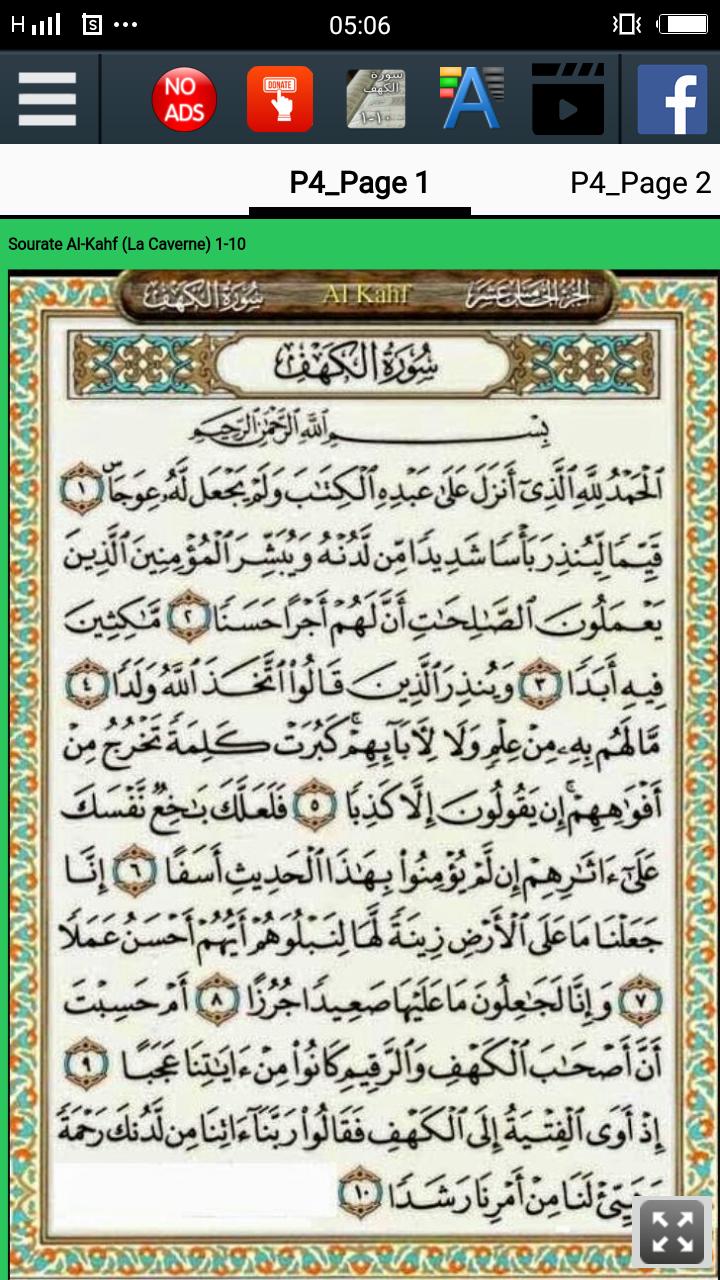 H S ••• 05:06
NO ADS DONATE سورة الكهف ١-١٠ A f
P4_Page 1 P4_Page 2
Sourate Al-Kahf (La Caverne) 1-10
الجزء الخامس عشر Al Kahf سورة الكهف
سُورَةُ الكَهْفِ
بِسْمِ ٱللَّهِ ٱلرَّحْمَٰنِ ٱلرَّحِيمِ
ٱلْحَمْدُ لِلَّهِ ٱلَّذِىٓ أَنزَلَ عَلَىٰ عَبْدِهِ ٱلْكِتَٰبَ وَلَمْ يَجْعَل لَّهُۥ عِوَجَاۜ ١
قَيِّمًا لِّيُنذِرَ بَأْسًا شَدِيدًا مِّن لَّدُنْهُ وَيُبَشِّرَ ٱلْمُؤْمِنِينَ ٱلَّذِينَ
يَعْمَلُونَ ٱلصَّٰلِحَٰتِ أَنَّ لَهُمْ أَجْرًا حَسَنًا ٢ مَّٰكِثِينَ
فِيهِ أَبَدًا ٣ وَيُنذِرَ ٱلَّذِينَ قَالُوا۟ ٱتَّخَذَ ٱللَّهُ وَلَدًا ٤
مَّا لَهُم بِهِۦ مِنْ عِلْمٍ وَلَا لِءَابَآئِهِمْ ۚ كَبُرَتْ كَلِمَةً تَخْرُجُ مِنْ
أَفْوَٰهِهِمْ ۚ إِن يَقُولُونَ إِلَّا كَذِبًا ٥ فَلَعَلَّكَ بَٰخِعٌ نَّفْسَكَ
عَلَىٰٓ ءَاثَٰرِهِمْ إِن لَّمْ يُؤْمِنُوا۟ بِهَٰذَا ٱلْحَدِيثِ أَسَفًا ٦ إِنَّا
جَعَلْنَا مَا عَلَى ٱلْأَرْضِ زِينَةً لَّهَا لِنَبْلُوَهُمْ أَيُّهُمْ أَحْسَنُ عَمَلًا
٧ وَإِنَّا لَجَٰعِلُونَ مَا عَلَيْهَا صَعِيدًا جُرُزًا ٨ أَمْ حَسِبْتَ
أَنَّ أَصْحَٰبَ ٱلْكَهْفِ وَٱلرَّقِيمِ كَانُوا۟ مِنْ ءَايَٰتِنَا عَجَبًا ٩
إِذْ أَوَى ٱلْفِتْيَةُ إِلَى ٱلْكَهْفِ فَقَالُوا۟ رَبَّنَآ ءَاتِنَا مِن لَّدُنكَ رَحْمَةً
وَهَيِّئْ لَنَا مِنْ أَمْرِنَا رَشَدًا ١٠